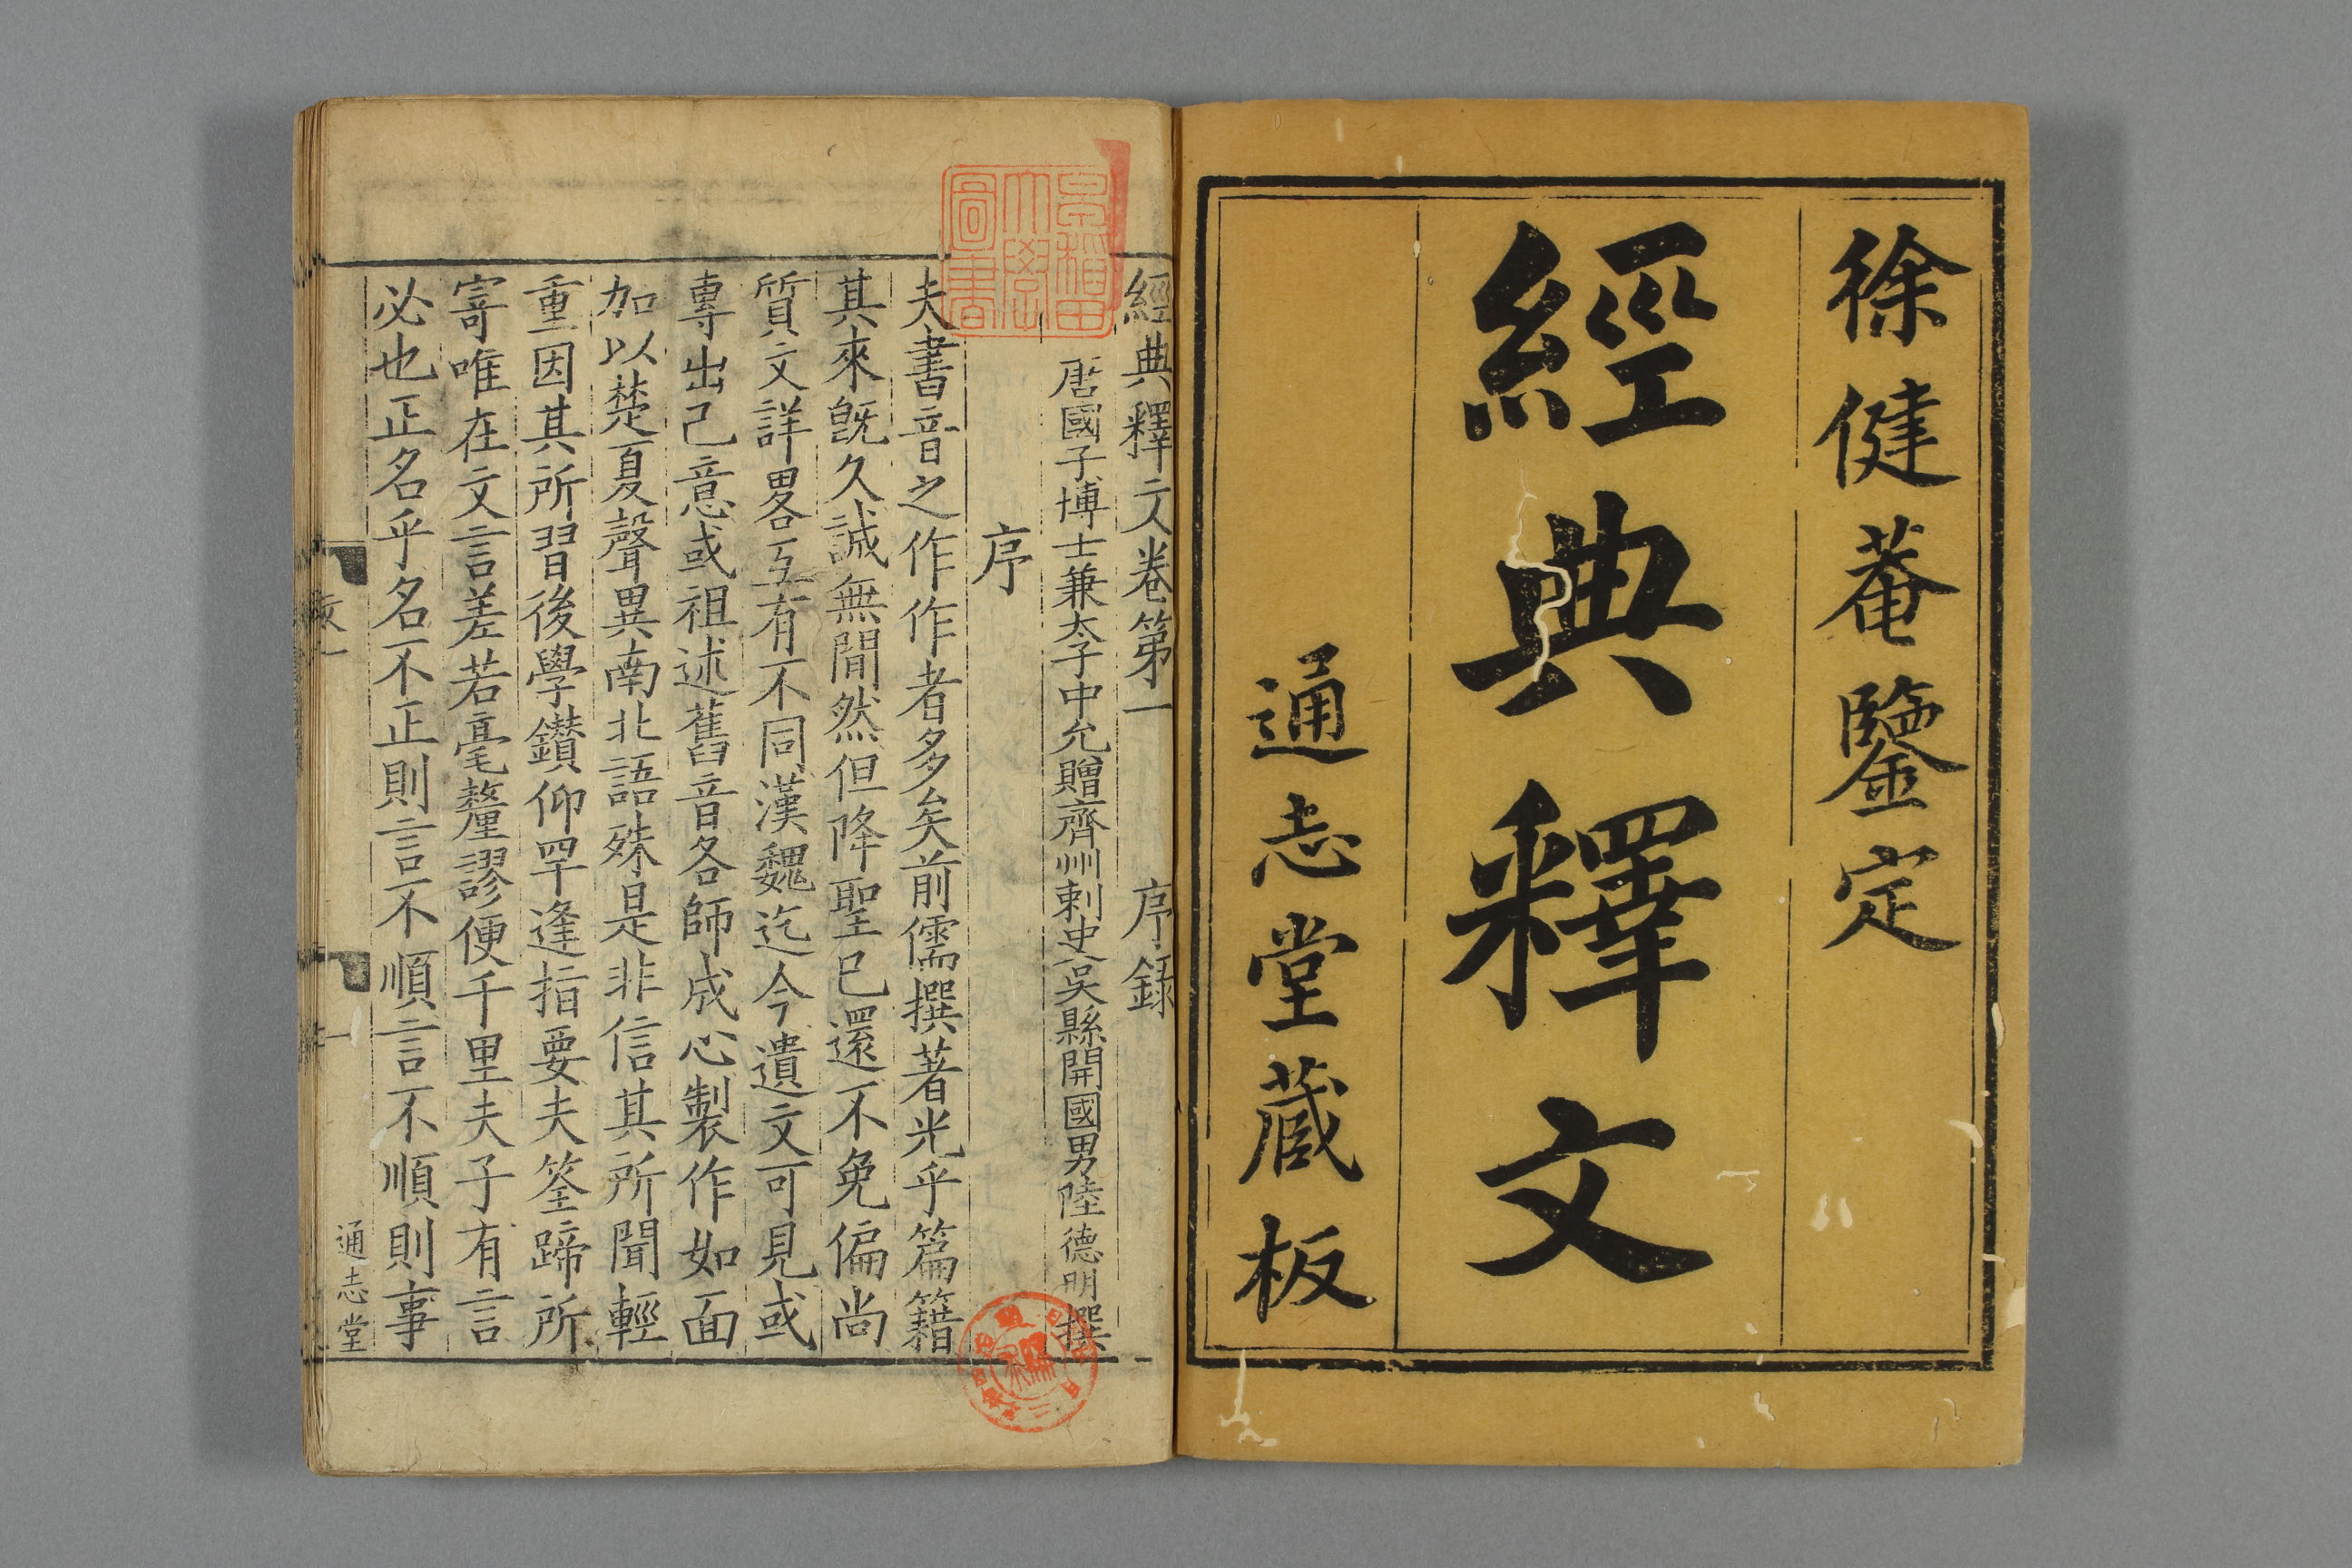 徐健菴鑒定
經典釋文
通志堂藏板
經典釋文卷第一 序錄
唐國子博士兼太子中允贈齊州刺史吳縣開國男陸德明撰
序
夫書音之作作者多矣前儒撰著光乎篇籍
其來旣久誠無間然但降聖已還不免偏尚
質文詳畧互有不同漢魏迄今遺文可見或
專出己意或祖述舊音各師成心製作如面
加以楚夏聲異南北語殊是非信其所聞輕
重因其所習後學鑽仰罕逢指要夫筌蹄所
寄唯在文言差若毫釐謬便千里夫子有言
必也正名乎名不正則言不順言不順則事
通志堂
早稲田大學圖書